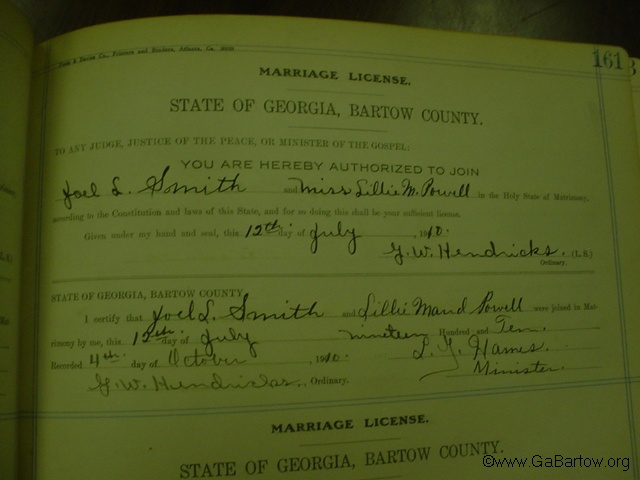 Foote & Davies Co., Printers and Binders, Atlanta, Ga.
161
MARRIAGE LICENSE.
STATE OF GEORGIA, BARTOW COUNTY.
TO ANY JUDGE, JUSTICE OF THE PEACE, OR MINISTER OF THE GOSPEL:
YOU ARE HEREBY AUTHORIZED TO JOIN
Joel L. Smith and Miss Lillie M. Powell in the Holy State of Matrimony,
according to the Constitution and laws of this State, and for so doing this shall be your sufficient license.
Given under my hand and seal, this 12th day of July 1910.
G. W. Hendricks. (L. S.)
Ordinary.
STATE OF GEORGIA, BARTOW COUNTY
I certify that Joel L. Smith and Lillie Maud Powell were joined in Mat-
rimony by me, this 12th day of July nineteen Hundred and Ten.
Recorded 4th day of October 1910. Hames.
G. W. Hendricks Ordinary. Minister.
MARRIAGE LICENSE.
STATE OF GEORGIA, BARTOW COUNTY.
©www.GaBartow.org